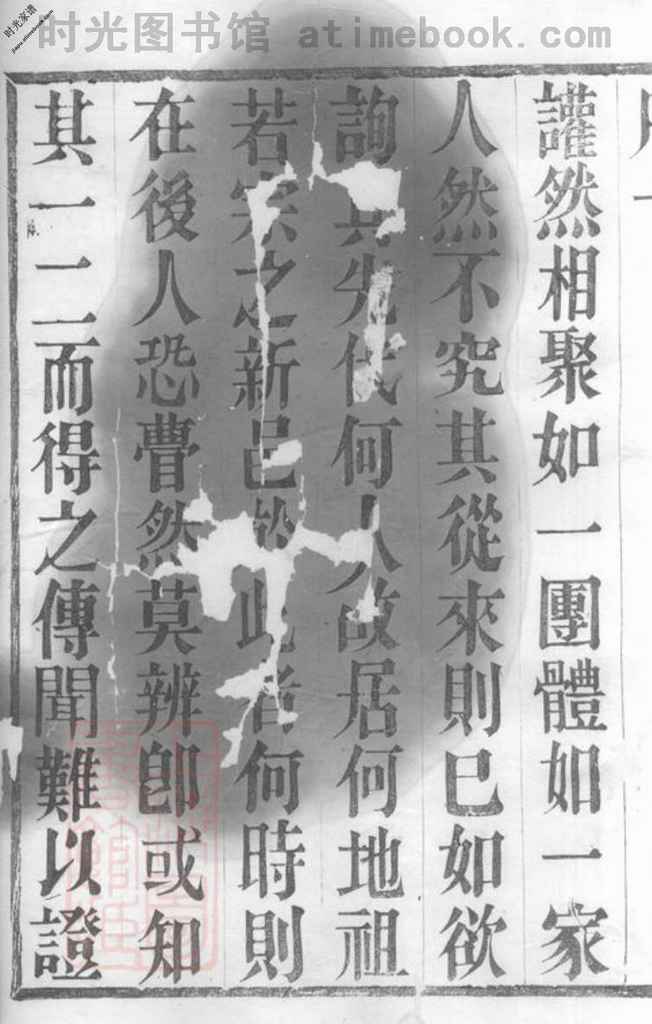 时光图书馆 atimebook.com
时光家谱
讙然相聚如一團體如一家
人然不究其從來則已如欲
詢其先代何人故居何地祖
若宗之新邑於此者何時則
在後人恐瞢然莫辨卽或知
其一二而得之傳聞難以證